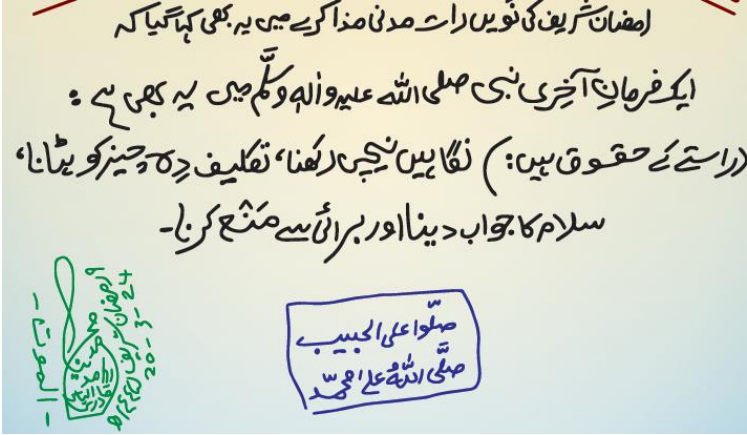 رمضان شریف کی نویں رات مدنی مذاکرے میں یہ بھی کہا گیا کہ
ایک فرمانِ آخری نبی صلی اللہ علیہ واٰلہٖ وسلَّم میں یہ بھی ہے :
(راستے کے حقوق ہیں:) نگاہیں نیچی رکھنا، تکلیف دِہ چیز کو ہٹانا،
سلام کا جواب دینا اور برائی سے مَنْع کرنا۔
صلُّوا علی الحبیب
صلَّی اللہُ علٰی محمّد
۹ رمضان شریف ۱۴۴۵ھ
20-3-24